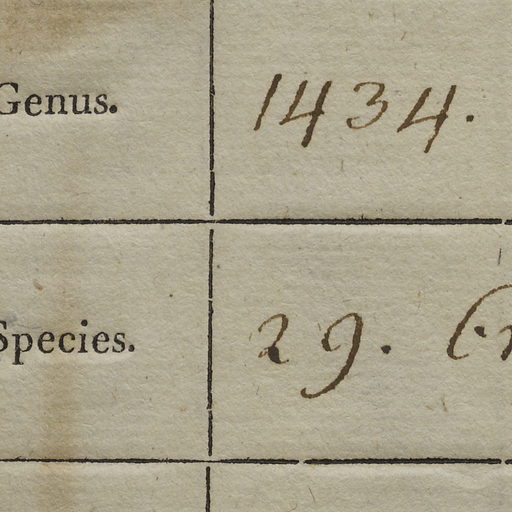 Genus. 1434.
Species. 29.